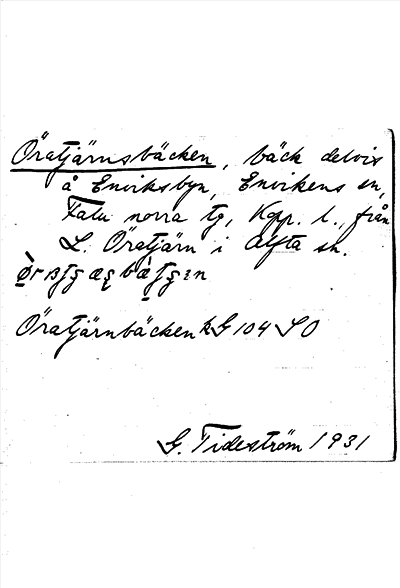 Öratjärnsbäcken, bäck delvis
å Enviksbyn, Envikens sn,
Falu norra tg, Kopp. l., från
L. Öratjärn i Alfta sn.
Öratjärnbäcken kG 104 SO
G. Tideström 1931